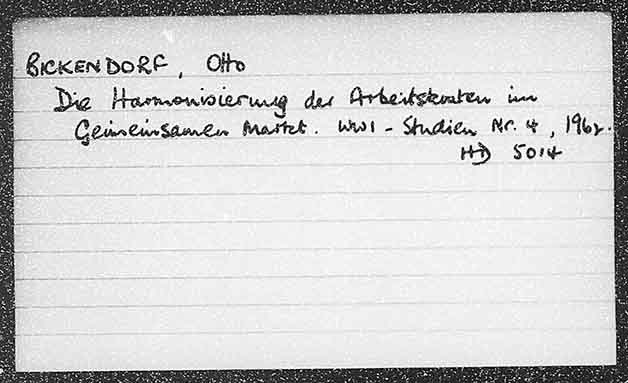 BICKENDORF, Otto
Die Harmonisierung der Arbeitskosten im
Gemeinsamen Markt. WWI - Studien Nr. 4, 1962.
HD 5014